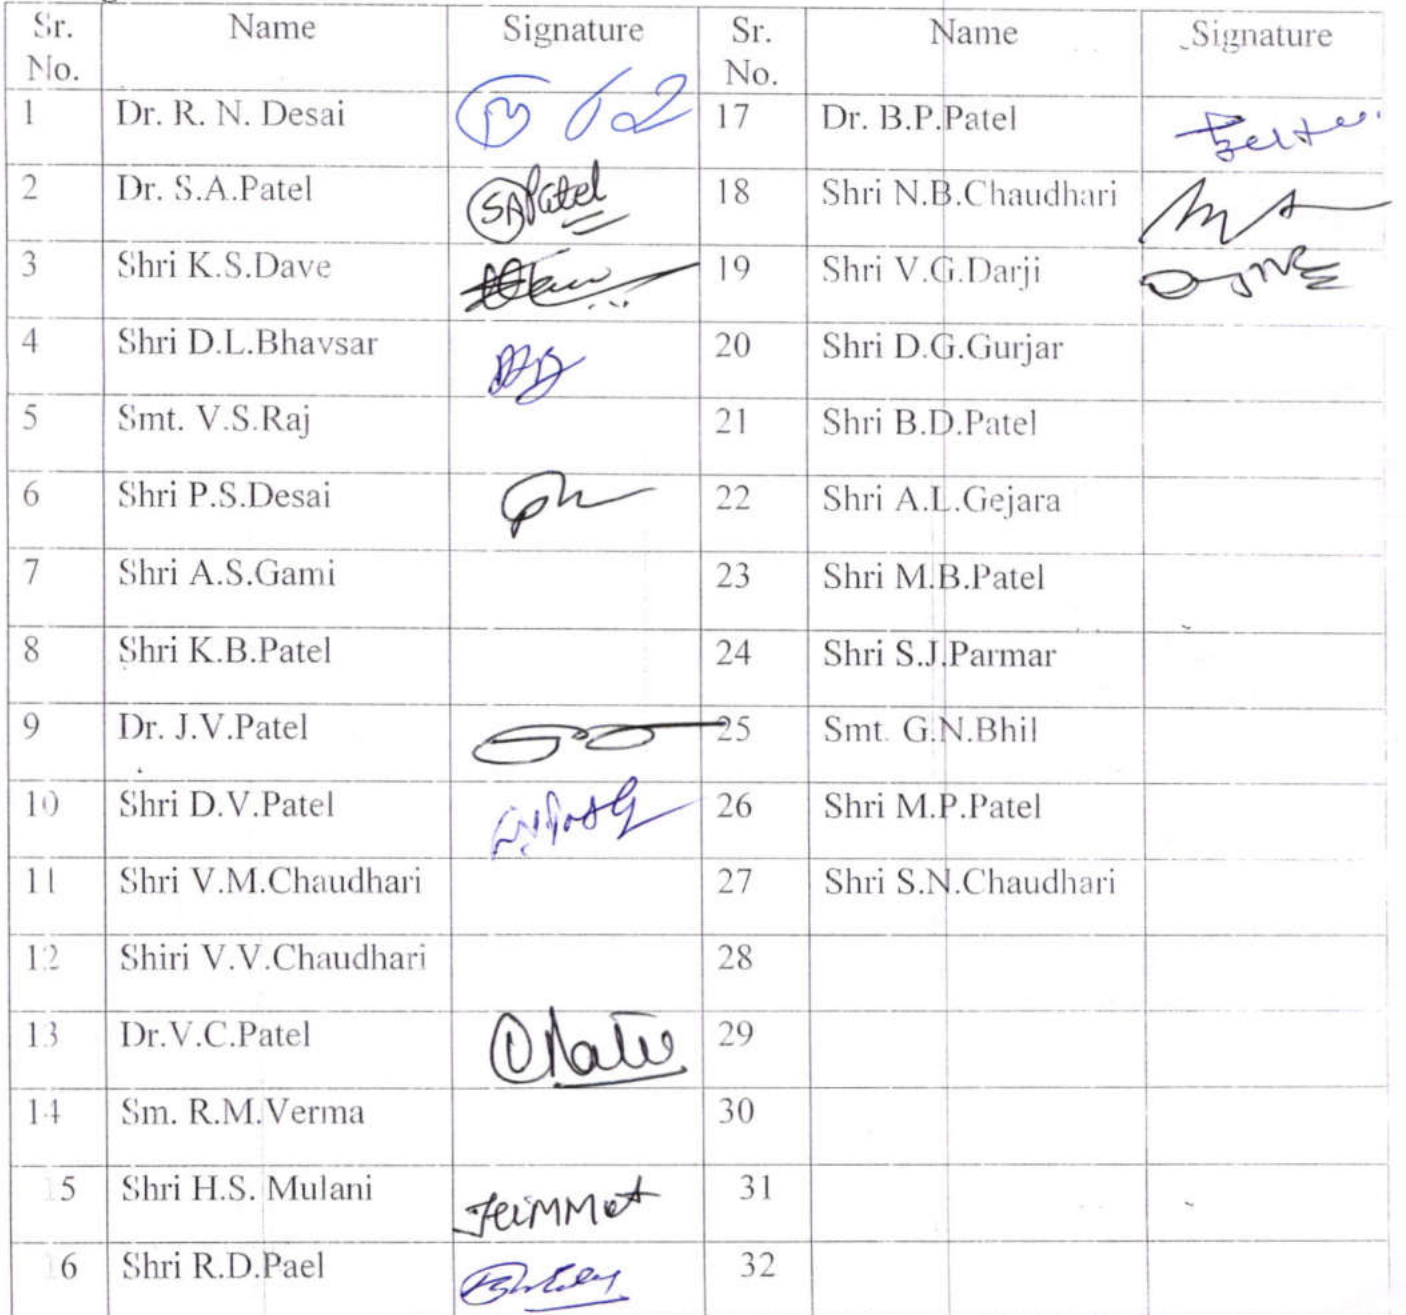 Sr. No. Name Signature Sr. No. Name Signature
1 Dr. R. N. Desai 17 Dr. B.P.Patel
2 Dr. S.A.Patel SAPatel 18 Shri N.B.Chaudhari
3 Shri K.S.Dave 19 Shri V.G.Darji
4 Shri D.L.Bhavsar 20 Shri D.G.Gurjar
5 Smt. V.S.Raj 21 Shri B.D.Patel
6 Shri P.S.Desai 22 Shri A.L.Gejara
7 Shri A.S.Gami 23 Shri M.B.Patel
8 Shri K.B.Patel 24 Shri S.J.Parmar
9 Dr. J.V.Patel 25 Smt. G.N.Bhil
10 Shri D.V.Patel 26 Shri M.P.Patel
11 Shri V.M.Chaudhari 27 Shri S.N.Chaudhari
12 Shiri V.V.Chaudhari 28
13 Dr.V.C.Patel 29
14 Sm. R.M.Verma 30
15 Shri H.S. Mulani 31
16 Shri R.D.Pael 32